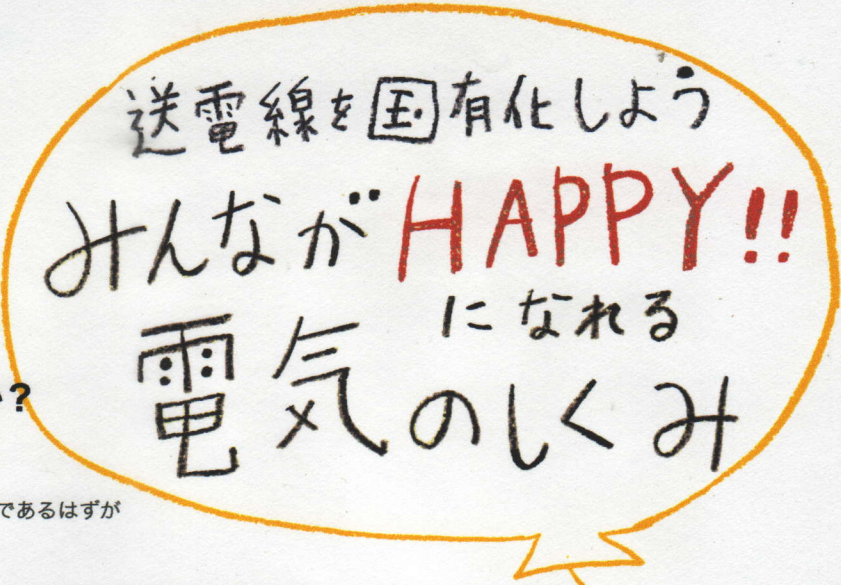 送電線を国有化しよう
みんながHAPPY!!
になれる
電気のしくみ
?
であるはずが